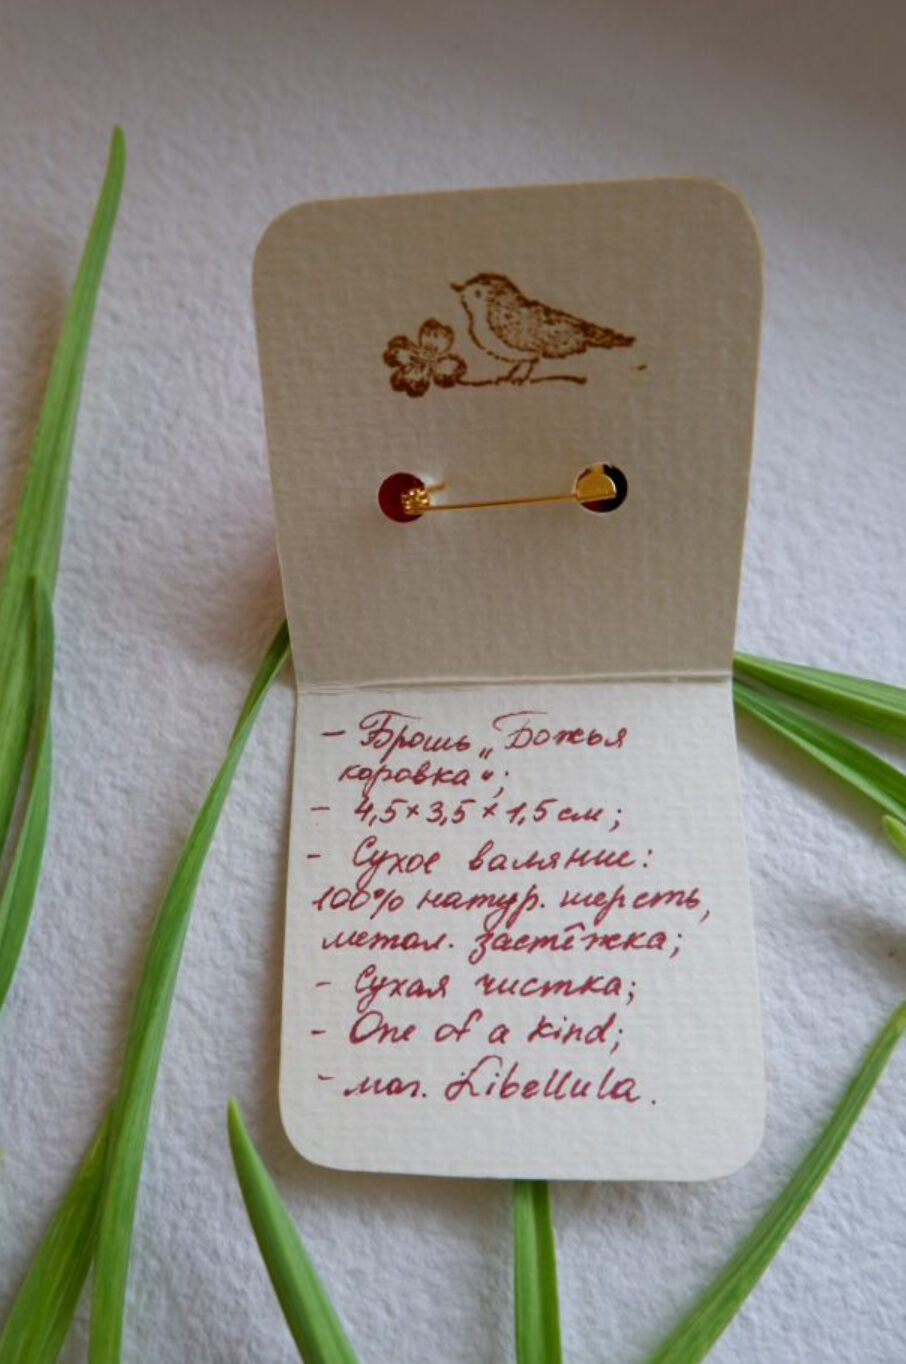 - Брошь „Божья
коровка“;
- 4,5×3,5×1,5 см;
- Сухое валяние:
100% натур. шерсть,
метал. застёжка;
- Сухая чистка;
- One of a kind;
- маг. Libellula.